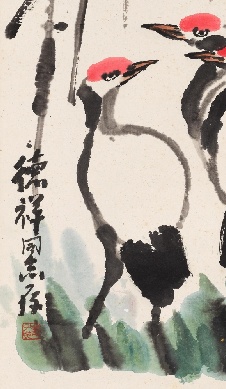 德祥同志存